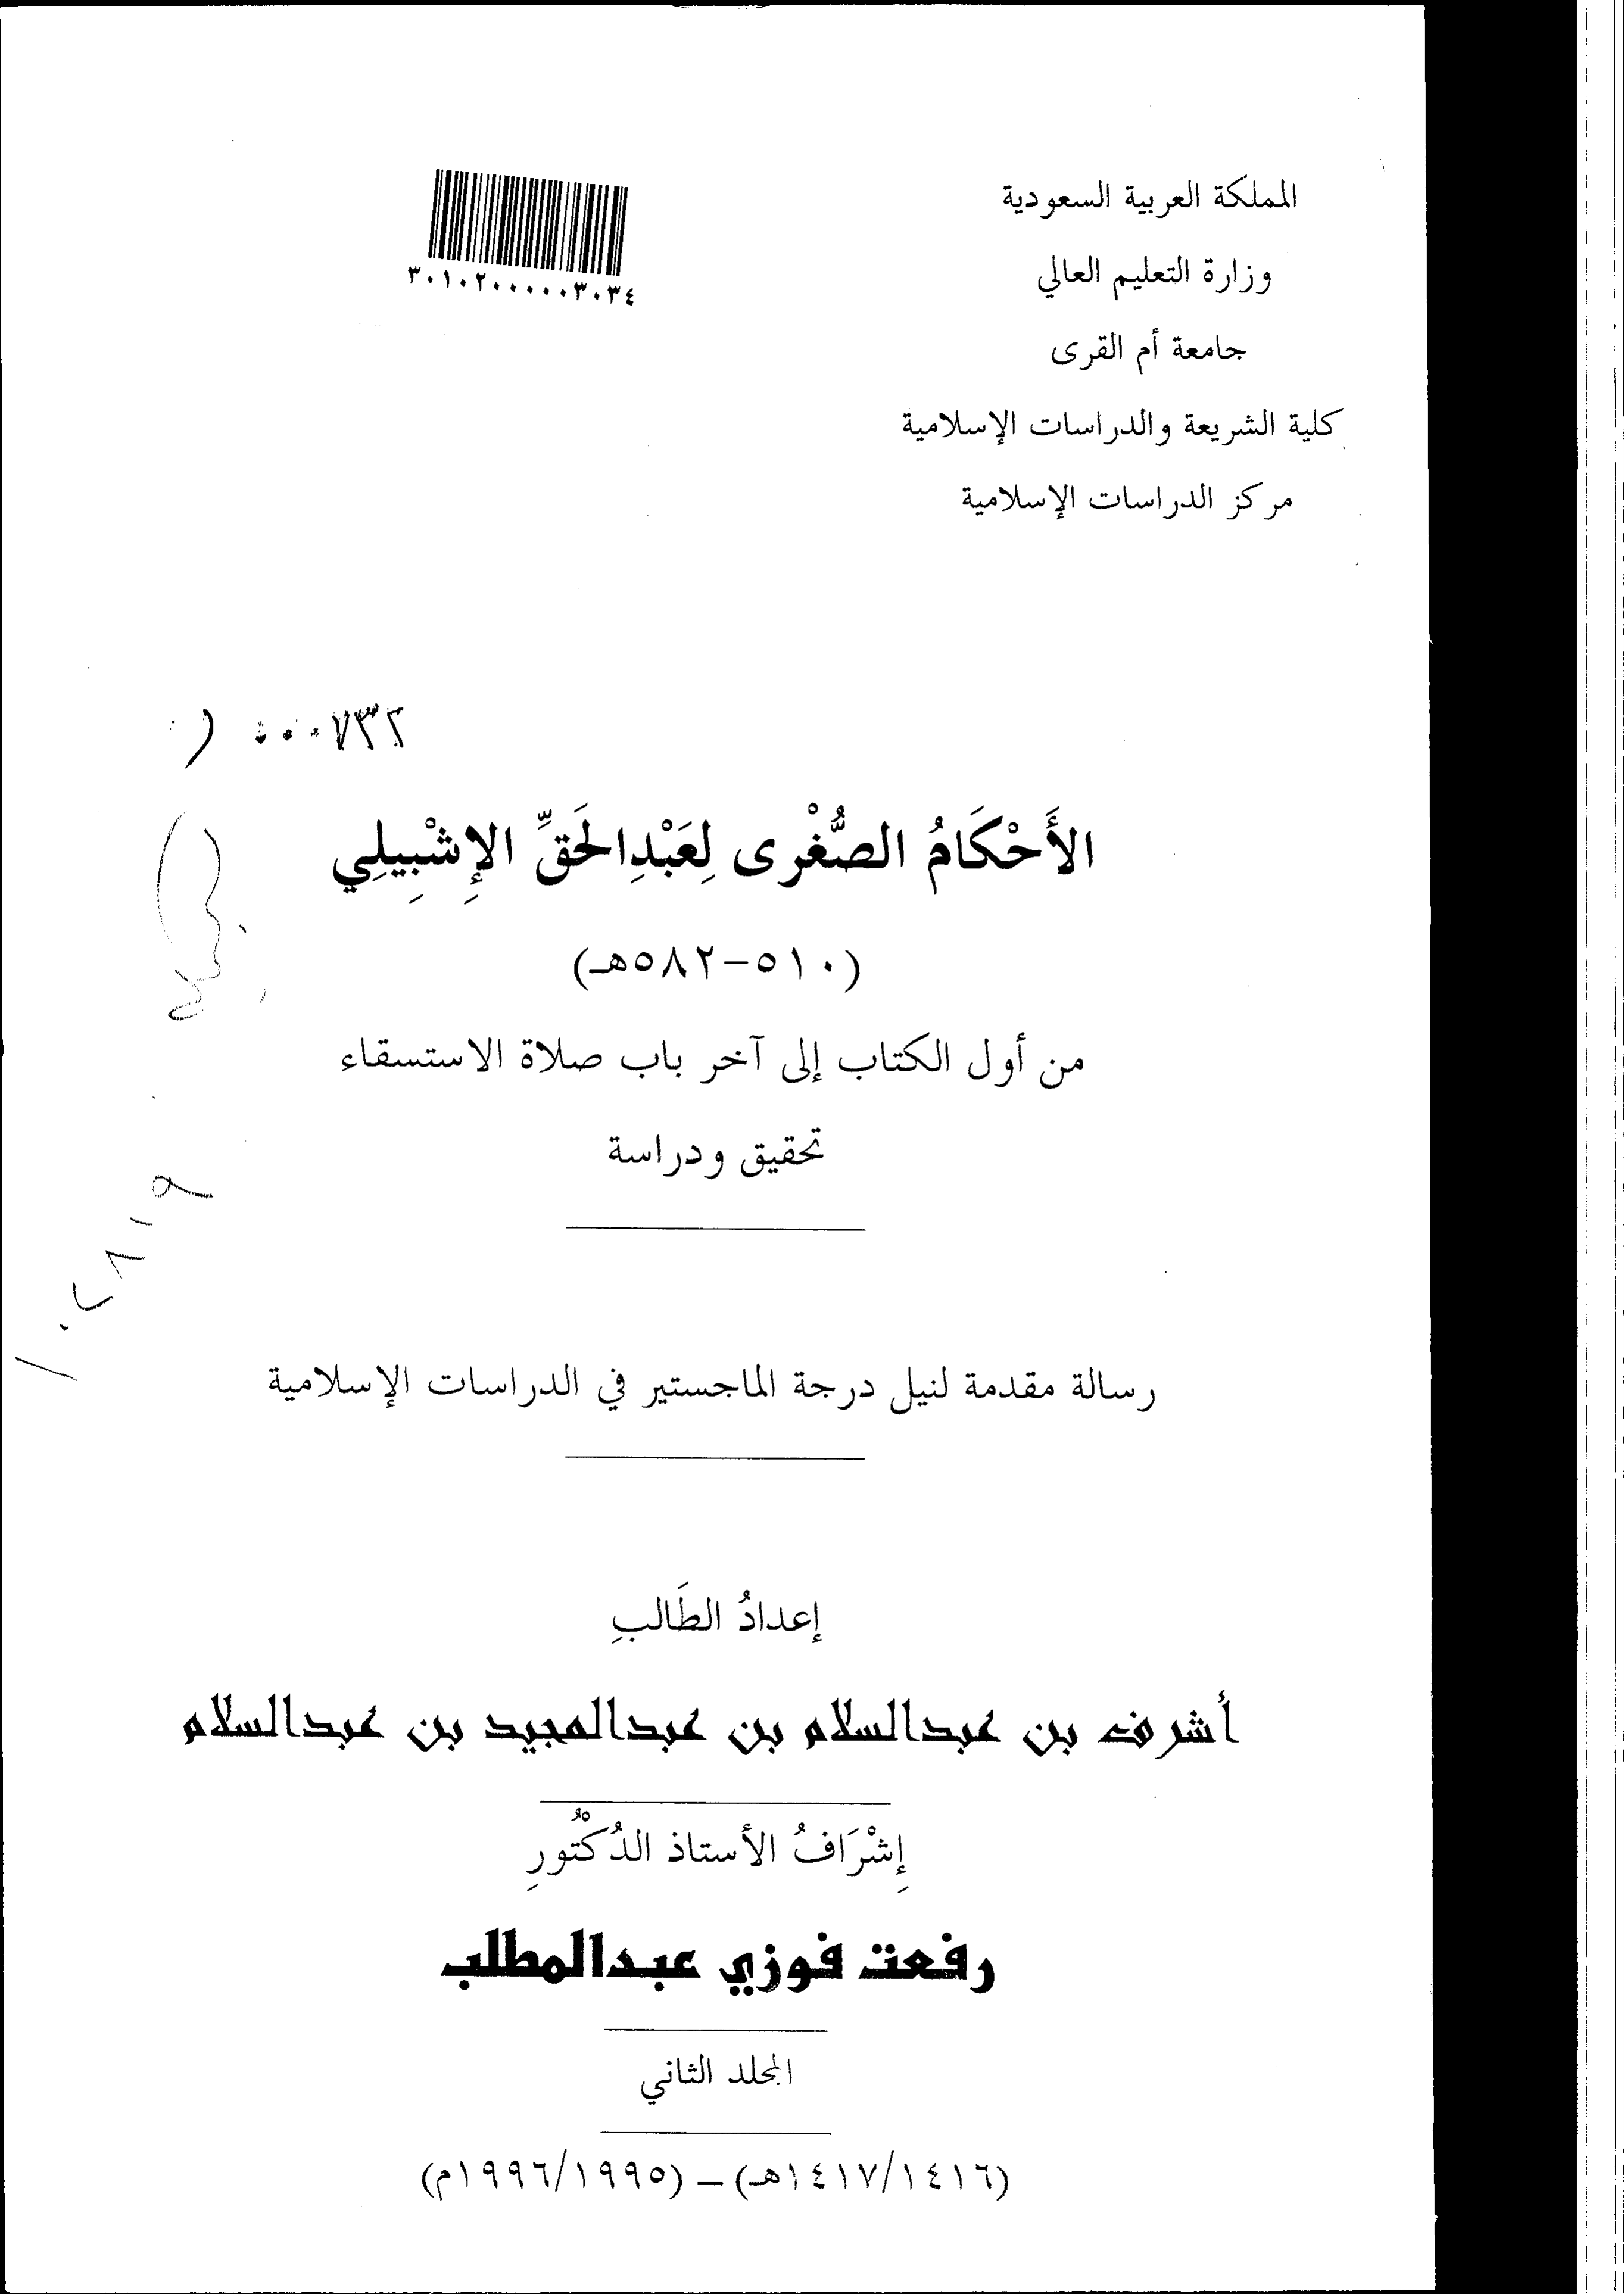 المملكة العربية السعودية
وزارة التعليم العالي
جامعة أم القرى
كلية الشريعة والدراسات الإسلامية
مركز الدراسات الإسلامية
٣٠١٠٢٠٠٠٠٠٣٠٣٤
الأَحْكَامُ الصُّغْرى لِعَبْدِالحَقِّ الإِشْبِيلِي
(٥١٠-٥٨٢هـ)
من أول الكتاب إلى آخر باب صلاة الاستسقاء
تحقيق ودراسة
رسالة مقدمة لنيل درجة الماجستير في الدراسات الإسلامية
إعدادُ الطَالبِ
أشرف بن عبدالسلام بن عبدالمجيد بن عبدالسلام
إِشْرَافُ الأستاذ الدُكْتُورِ
رفعت فوزي عبدالمطلب
المجلد الثاني
(١٤١٦/١٤١٧هـ) – (١٩٩٥/١٩٩٦م)